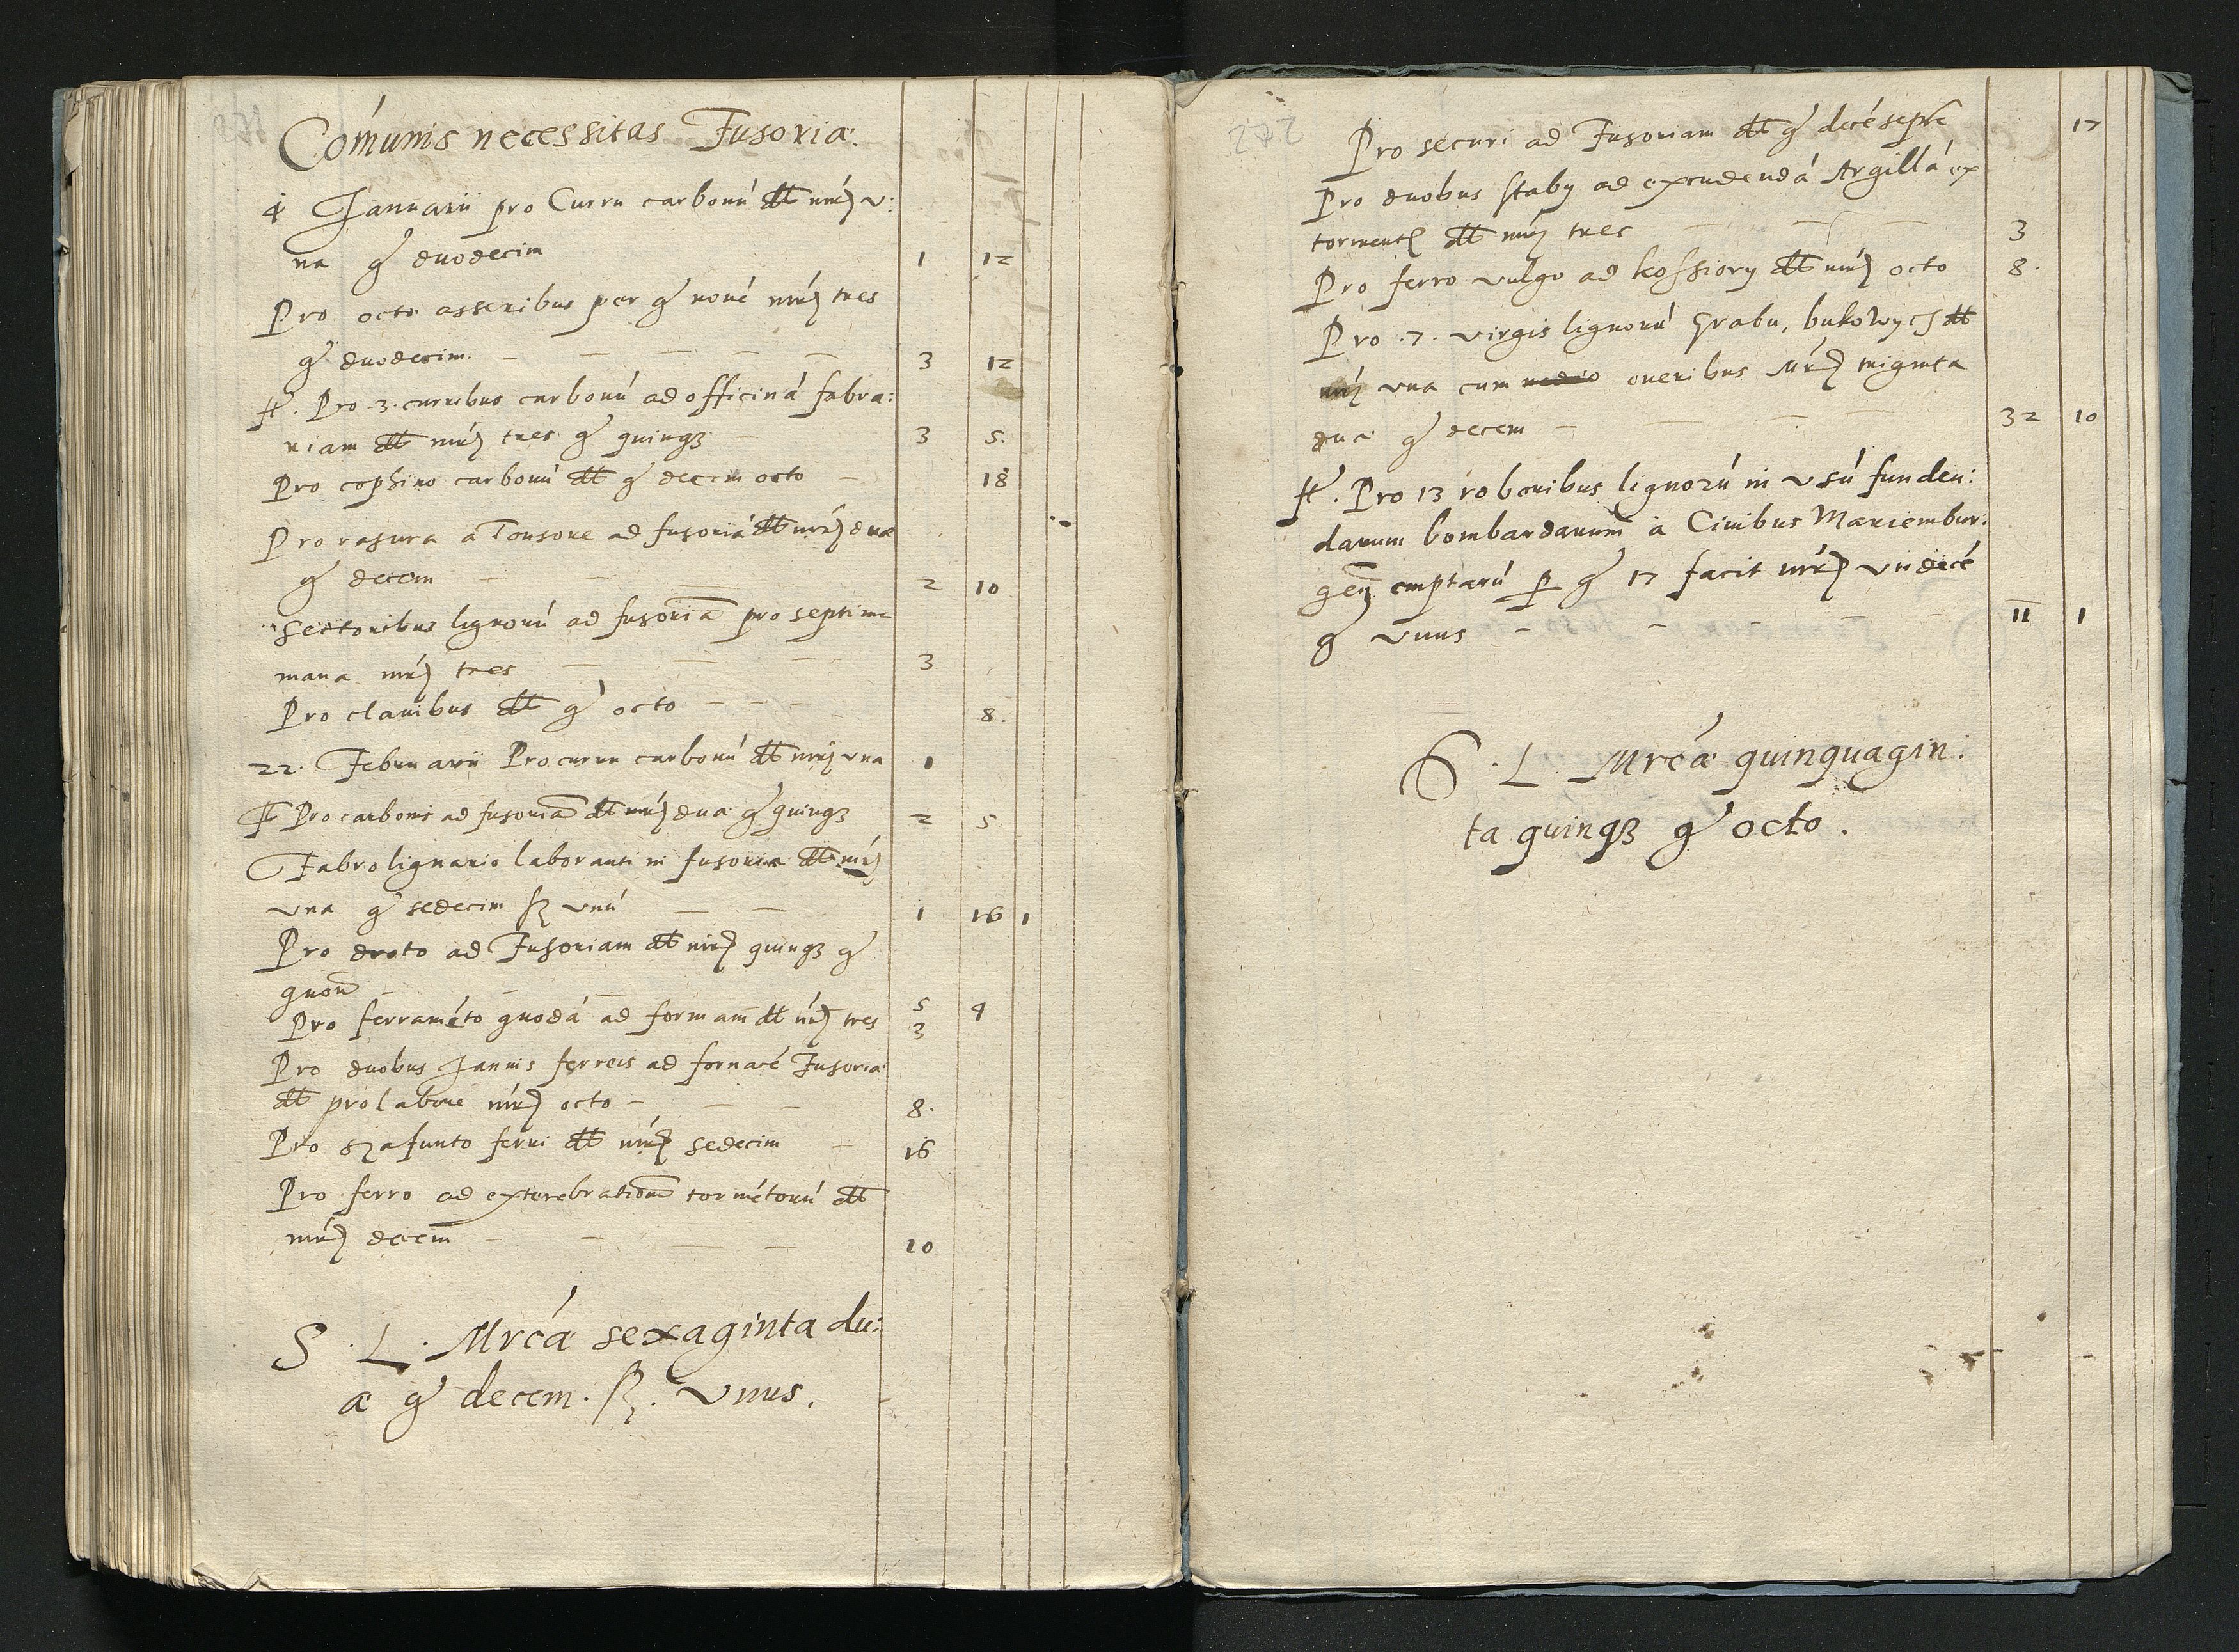 Comúnis necessitas Fusoriæ.
4 Januarii pro Curru carbonú dt mrć v:
na g duodecim 1 12
Pro octo asseribus per g noué mrć tres
g duodecim. 3 12
It. Pro .3. curribus carbonú ad officiná fabra:
riam dt mrć tres g quinqз 3 5.
Pro cophino carbonú dt g decem octo 18
Pro rasura a Tonsore ad fusoriá dt mrć duæ
g decem 2 10
Sectoribus lignorú ad fusoriā pro septima
mana mrć tres 3
Pro clauibus dt g octo 8.
22. Februarii Pro curru carbonú dt mrć vna 1
It Pro carbonis ad fusoriā dt mrć duæ g quinqз 2 5
Fabro lignario laboranti in fusoria dt mrć
vna g sedecim ß vnú 1 16 1
Pro droto ad Fusoriam dt mrć quinqз g
5 4
Pro ferraméto quodá ad formam dt mrć tres 3
Pro duobus Januis ferreis ad fornacé Fusoriæ
dt pro labore mrć octo 8.
Pro szafunto ferri dt mrć sedecim 16
Pro ferro ad exterebrationē tormétorú dt
mrć decem 10
S . L . Mrćæ sexaginta du:
æ g decem . ß . Vnus.
272
Pro securi ad Fusoriam dt g decé septē 17
Pro duobus staby ad excudendá Argillá ex
torment dt mrć tres 3
Pro ferro vulgo ad kossiory dt mrć octo 8.
Pro .7. virgis lignorú Grabu, bukowych dt
mrć vna cum oneribus Mrć triginta
duæ g decem 32 10
It. Pro 13 roboribus lignorú in vsú funden:
darum bombardarum à Ciuibus Mariembur:
geń emptarú p g 17 facit mrć vndecé
g vnus 11 1
S . L . Mrćæ quinquagin:
ta quinqз g octo .